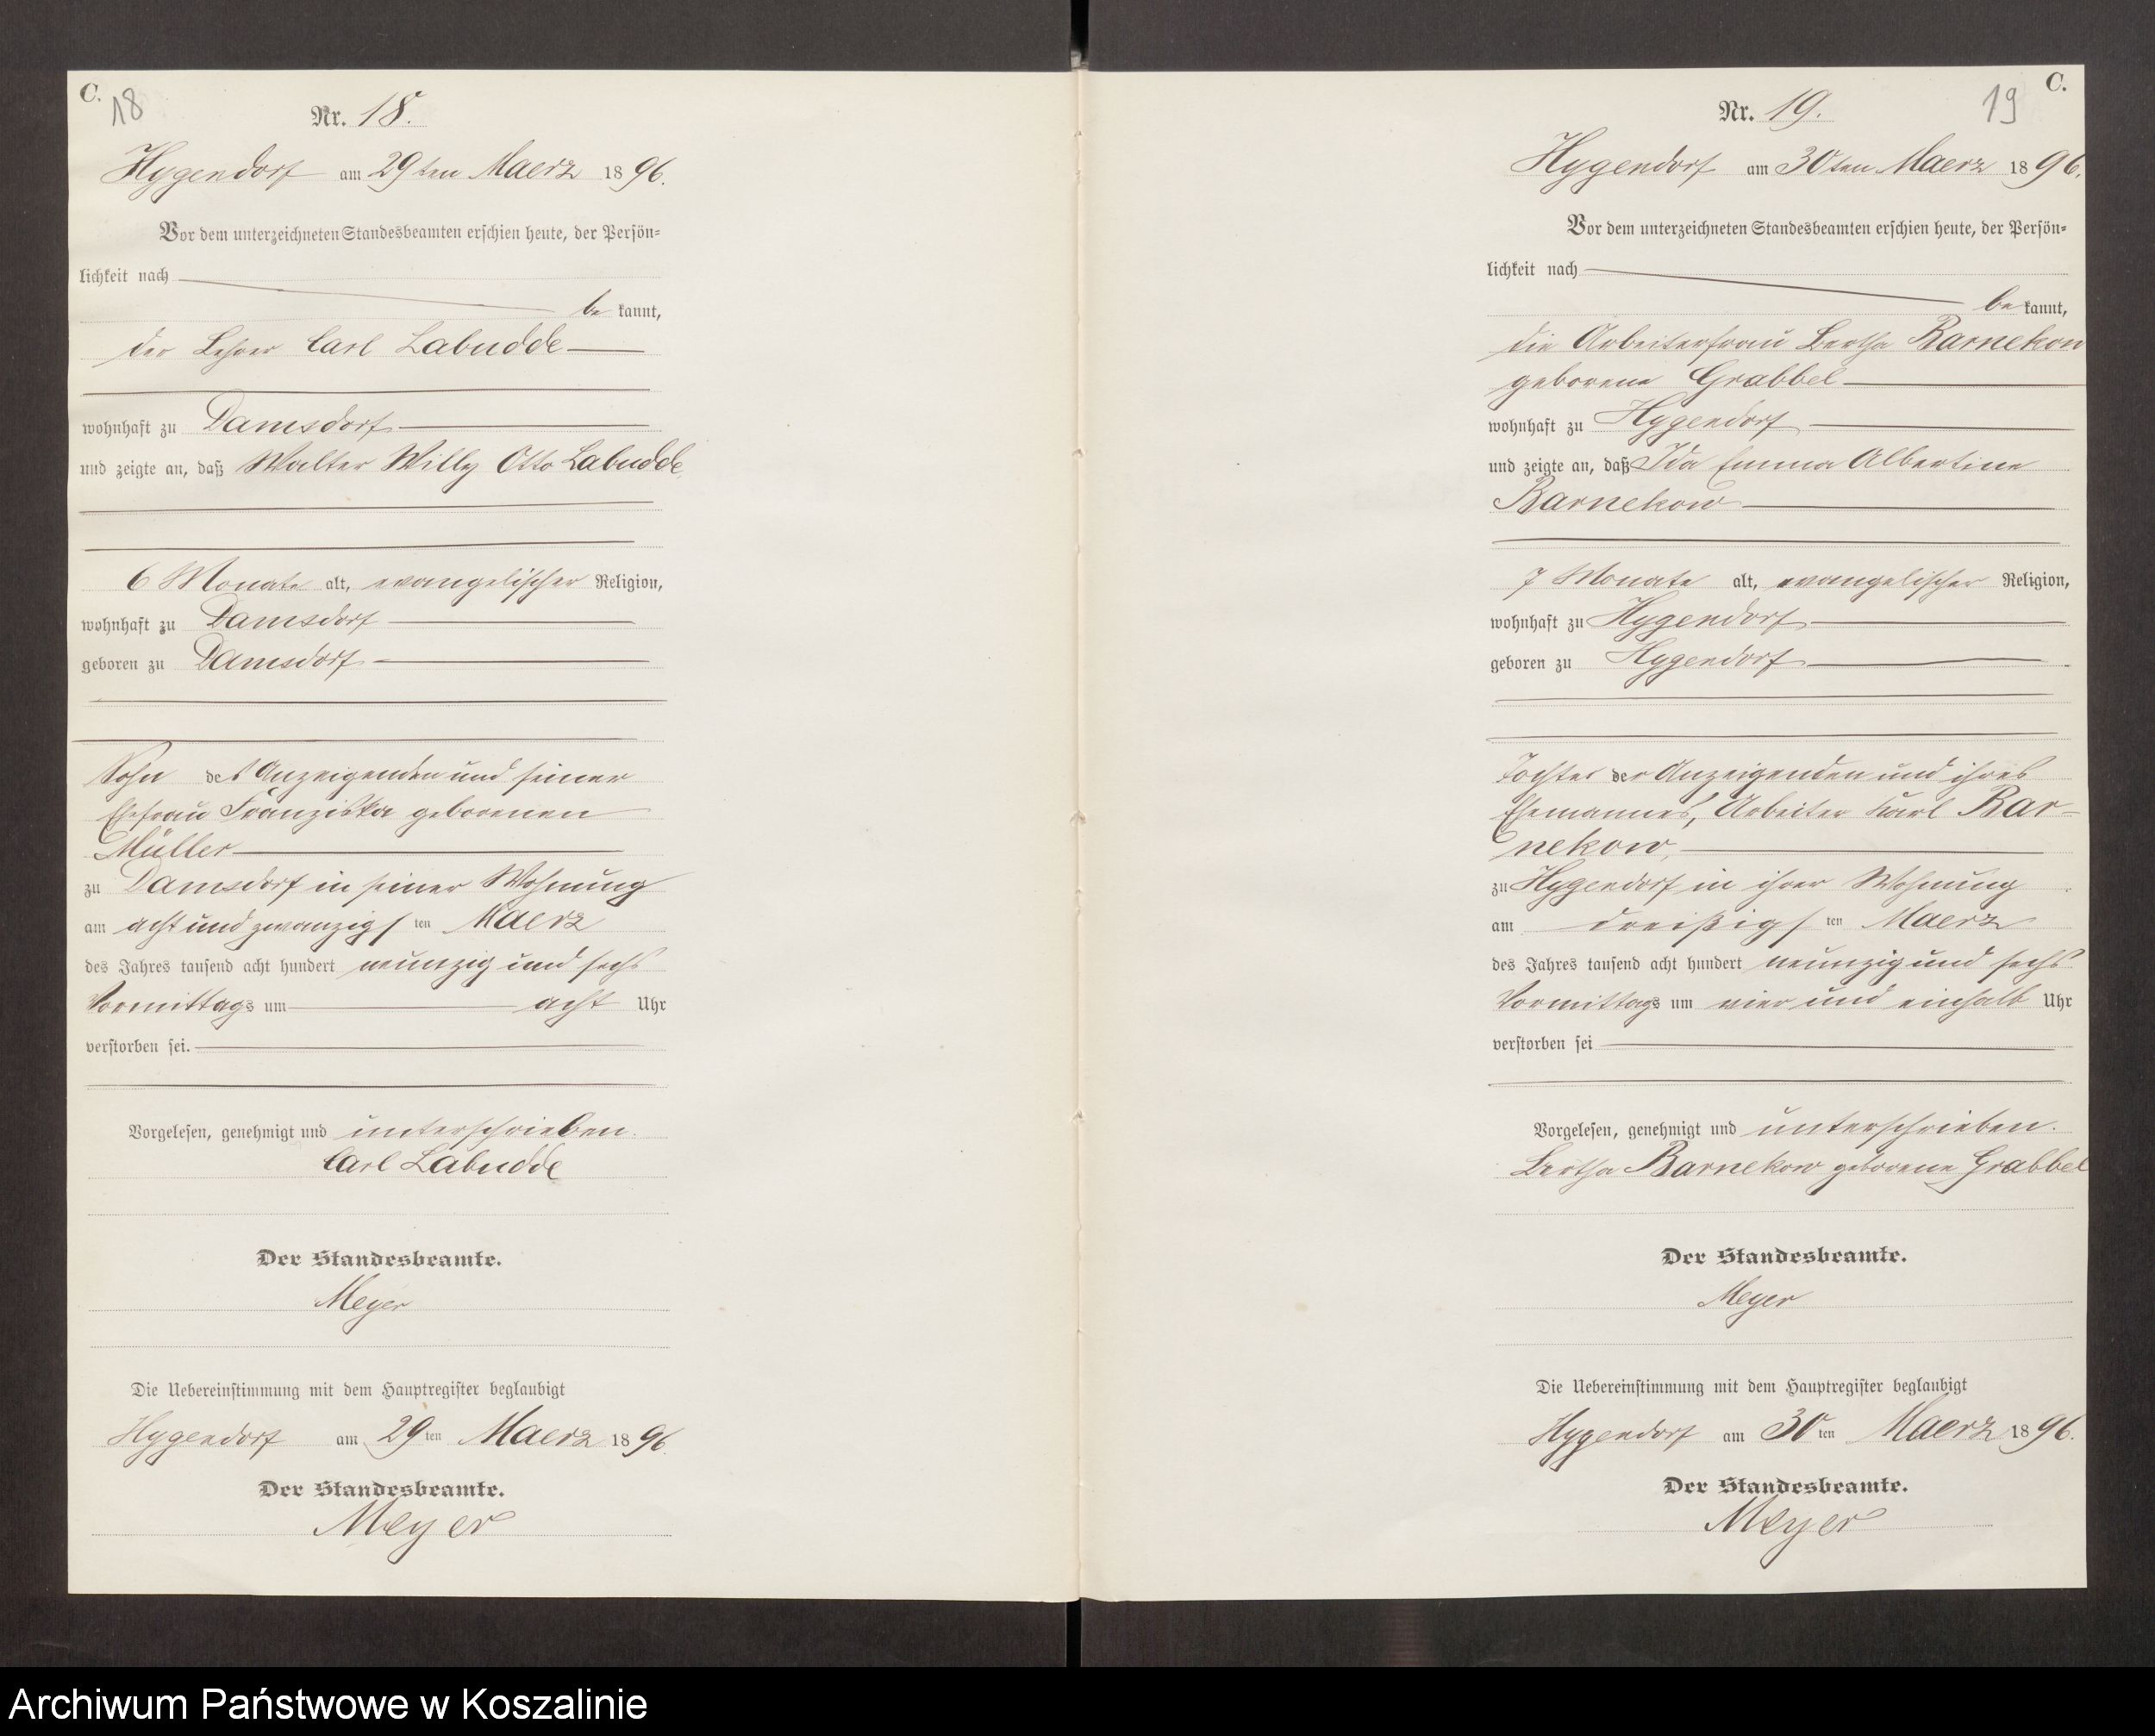 C.
18
Nr. 18.
Hygendorf am 29ten Maerz 1896.
Vor dem unterzeichneten Standesbeamten erschien heute, der Persön-
lichkeit nach
be kannt,
der Lehrer Carl Labudde
wohnhaft zu Damsdorf
und zeigte an, daß Walter Willy Otto Labudde,
6 Monate alt, evangelischer Religion,
wohnhaft zu Damsdorf
geboren zu Damsdorf
Sohn des Anzeigenden und seiner
Ehefrau Franziska geborenen
Müller
zu Damsdorf in seiner Wohnung
am acht und zwanzigsten Maerz
des Jahres tausend acht hundert neunzig und sechs
Vormittags um acht Uhr
verstorben sei.
Vorgelesen, genehmigt und unterschrieben.
Carl Labudde
Der Standesbeamte.
Meyer
Die Uebereinstimmung mit dem Hauptregister beglaubigt
Hygendorf am 29ten Maerz 1896.
Der Standesbeamte.
Meyer
C.
19
Nr. 19.
Hygendorf am 30ten Maerz 1896.
Vor dem unterzeichneten Standesbeamten erschien heute, der Persön-
lichkeit nach
be kannt,
die Arbeiterfrau Bertha Barnekow
geborene Grabbel
wohnhaft zu Hygendorf
und zeigte an, daß Ida Emma Albertine
Barnekow
7 Monate alt, evangelischer Religion,
wohnhaft zu Hygendorf
geboren zu Hygendorf
Tochter der Anzeigenden und ihres
Ehemannes, Arbeiter Karl Bar-
nekow,
zu Hygendorf in ihrer Wohnung
am dreißigsten Maerz
des Jahres tausend acht hundert neunzig und sechs
Vormittags um vier und einhalb Uhr
verstorben sei
Vorgelesen, genehmigt und unterschrieben.
Bertha Barnekow geborene Grabbel
Der Standesbeamte.
Meyer
Die Uebereinstimmung mit dem Hauptregister beglaubigt
Hygendorf am 30ten Maerz 1896.
Der Standesbeamte.
Meyer
Archiwum Państwowe w Koszalinie